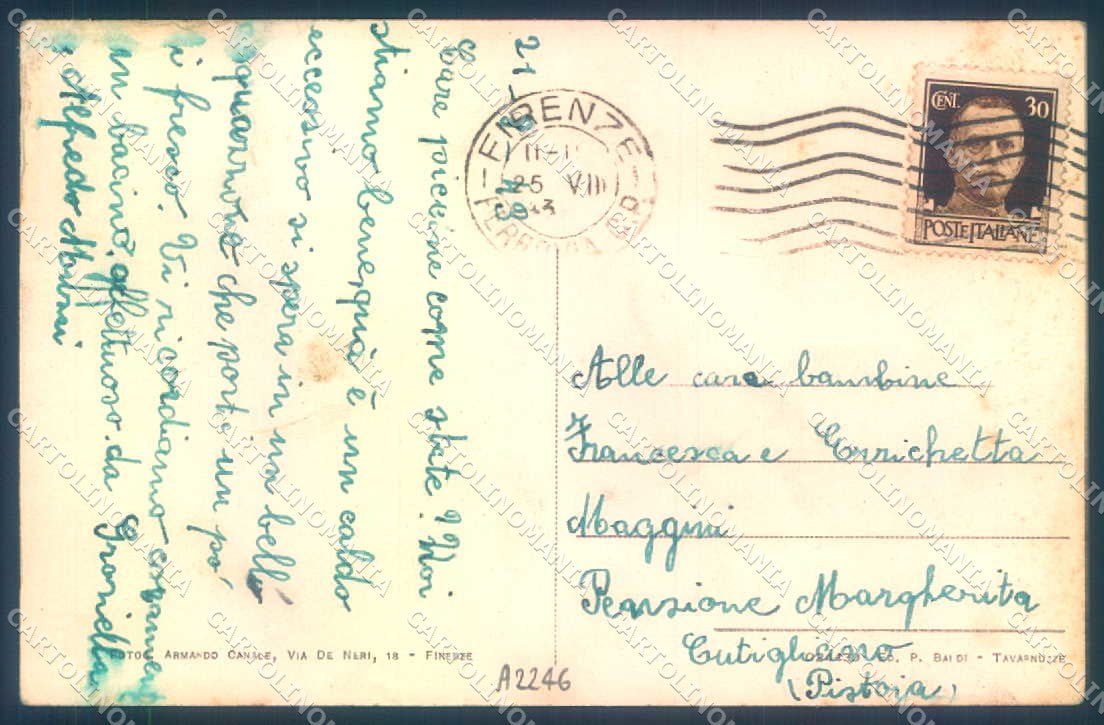 21-8-43
Care piccine come state? Noi
stiamo bene, quà è un caldo
eccessivo si spera in un bell'
acquazzone che porti un pò
i fresco. Vi ricordiamo caramente
un bacino affettuoso da Graziella
Alfredo
FIRENZE
11-1
25 VIII
43
FERROVIA
CENT. 30
POSTE ITALIANE
Alle care bambine
Francesca e Enrichetta
Maggini
Pensione Margherita
Cutigliano
(Pistoia)
FOTOG. ARMANDO CANALE, VIA DE NERI, 18 - FIRENZE
ED. P. BALDI - TAVARNUZZE
A2246
CARTOLINOMANIA